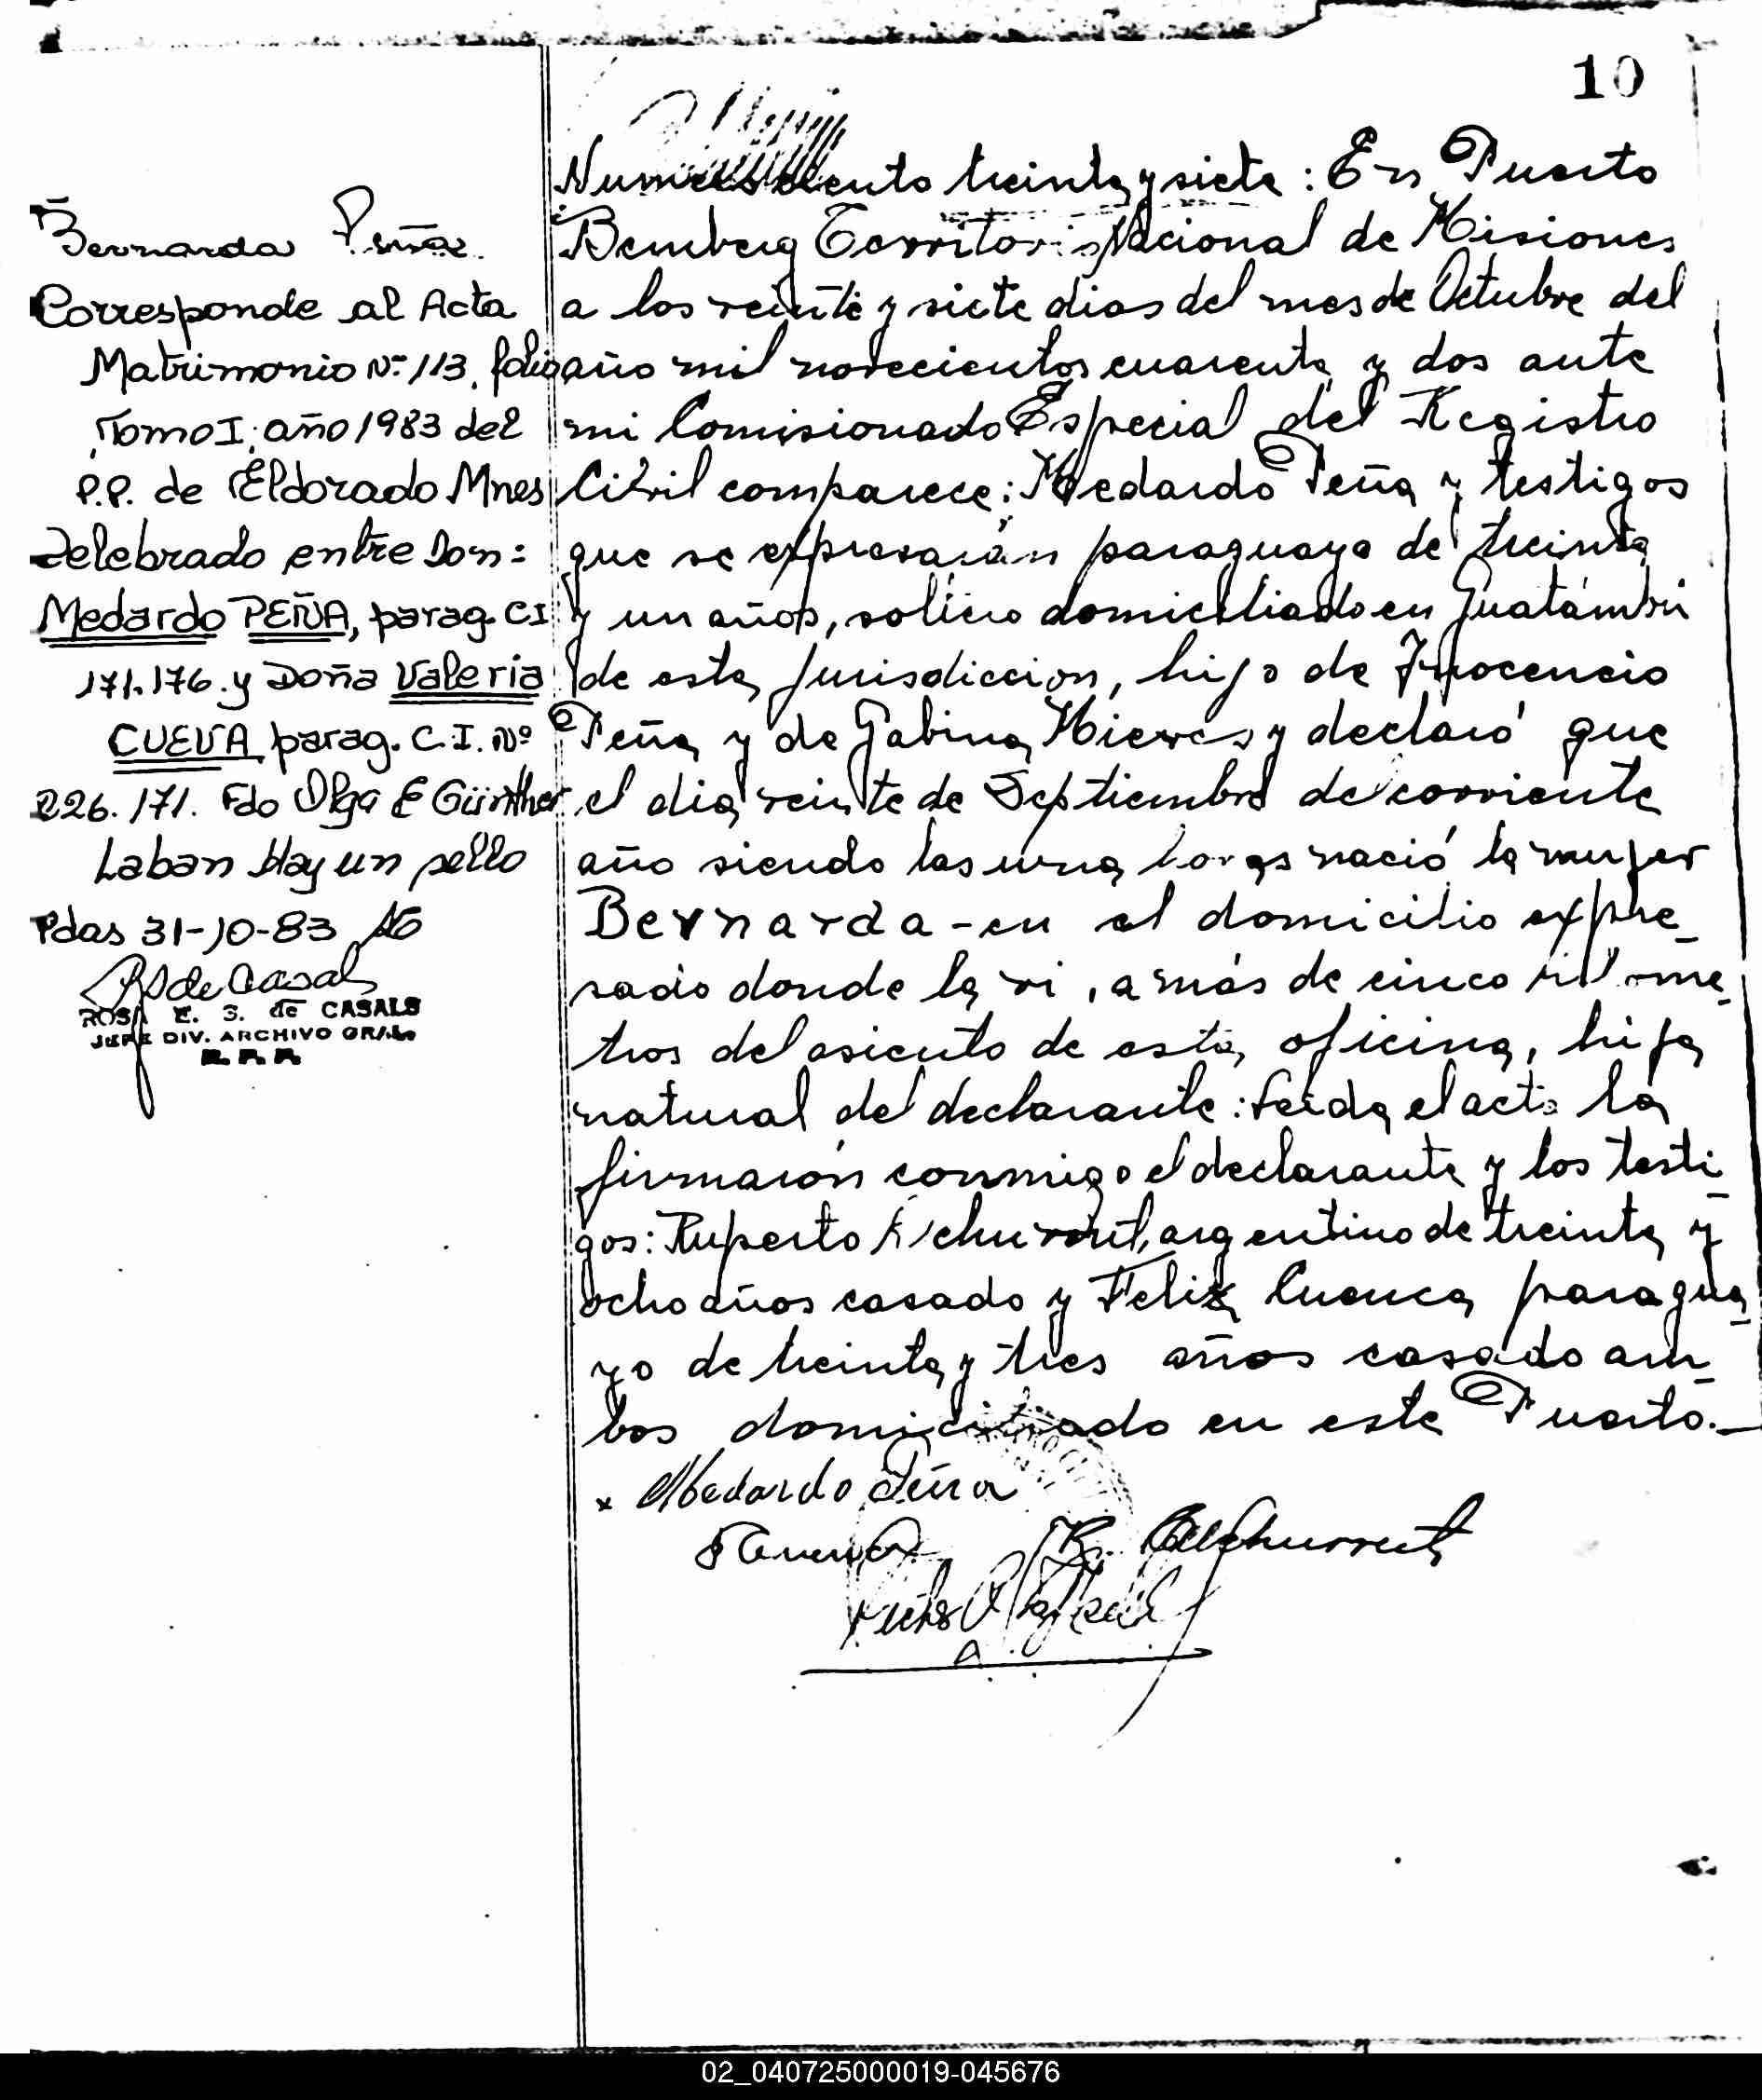 10
Bernarda Peña
Corresponde al Acta
Matrimonio Nº 113, folio
Tomo I, año 1983 del
P.P. de Eldorado Mnes
Zelebrado entre Don:
Medardo PEÑA, parag. CI
171.176. y Doña Valeria
CUEVA parag. C.I. Nº
226.171. Fdo Olga E Günther
Laban Hay un sello
Pdas 31-10-83
ROSA E. S. de CASALS
JEFE DIV. ARCHIVO GRAL.
Numero ciento treinta y siete: En Puerto
Bemberg Territorio Nacional de Misiones
a los veinte y siete dias del mes de Octubre del
año mil novecientos cuarenta y dos ante
mi Comisionado Especial del Registro
Civil comparece: Medardo Peña y testigos
que se expresarán paraguayo de treinta
y un años, soltero domiciliado en Guatámbú
de esta jurisdiccion, hijo de Inocencio
Peña y de Gabina Mieres y declaró que
el dia veinte de Septiembre de corriente
año siendo las una horas nació la mujer
Bernarda - en el domicilio expre_
sado donde la vi, a más de cinco kilome_
tros del asiento de esta oficina, hija
natural del declarante: Leida el acta la
firmarón conmigo el declarante y los testi_
gos: Ruperto Echurrut, argentino de treinta y
ocho años casado y Felix Cuenca paragua_
yo de treinta y tres años casado am_
bos domiciliado en este Puerto.
x Medardo Peña
F Cuenca R. Echurrut
02_040725000019-045676